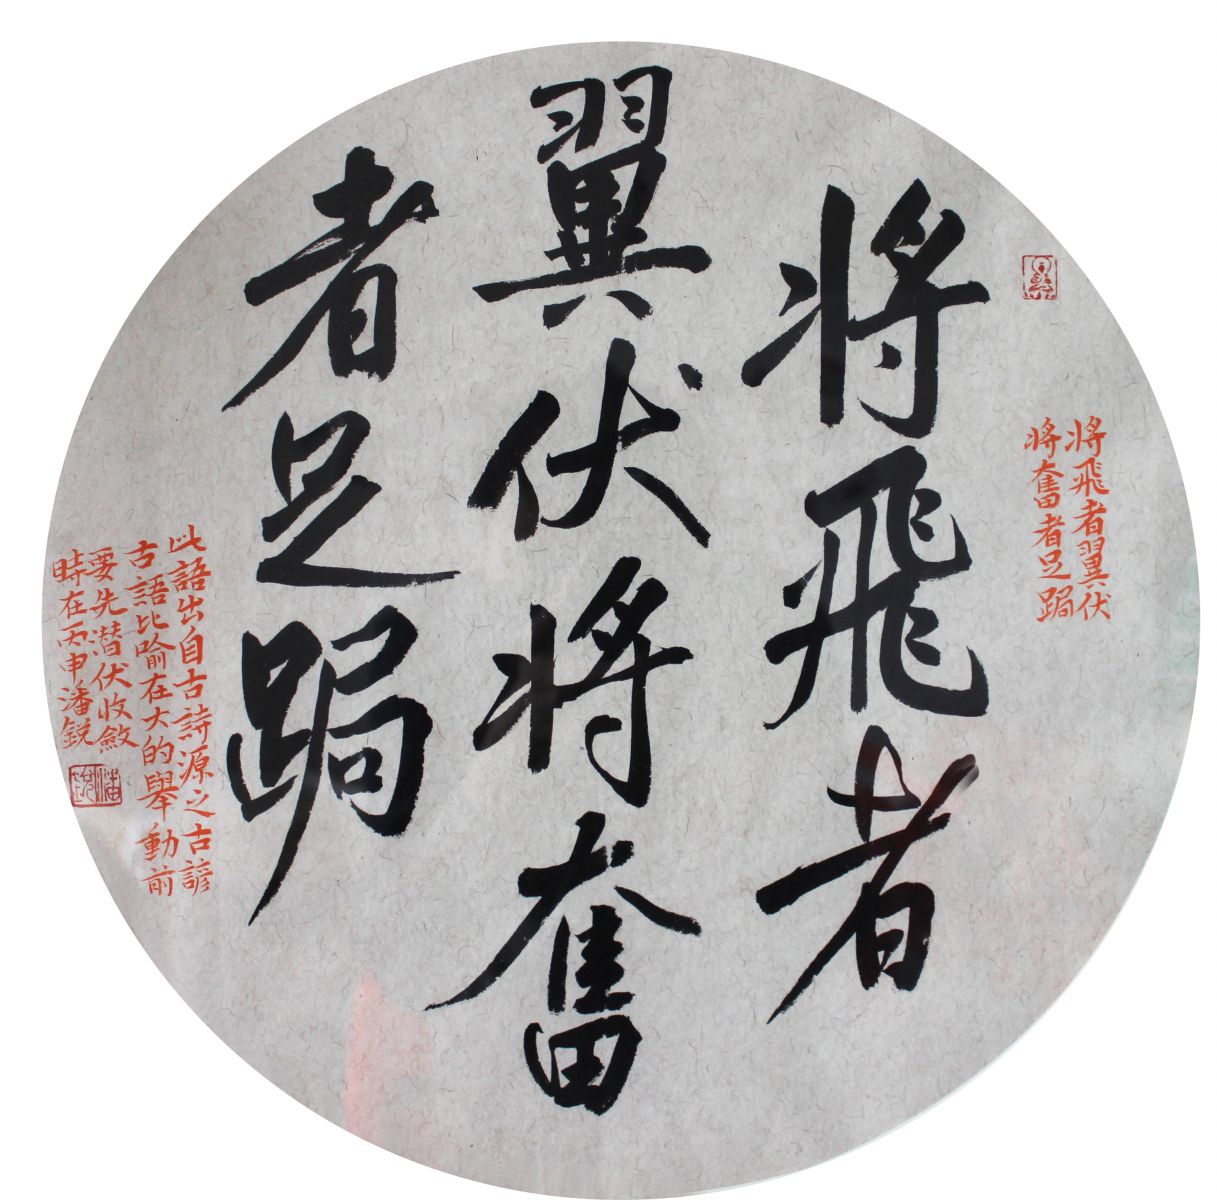 将飛者
翼伏将奮
者足跼
将飛者翼伏
将奮者足跼
此語出自古詩源之古諺
古語比喻在大的舉動前
要先潜伏收斂
時在丙申潘銳
潘銳